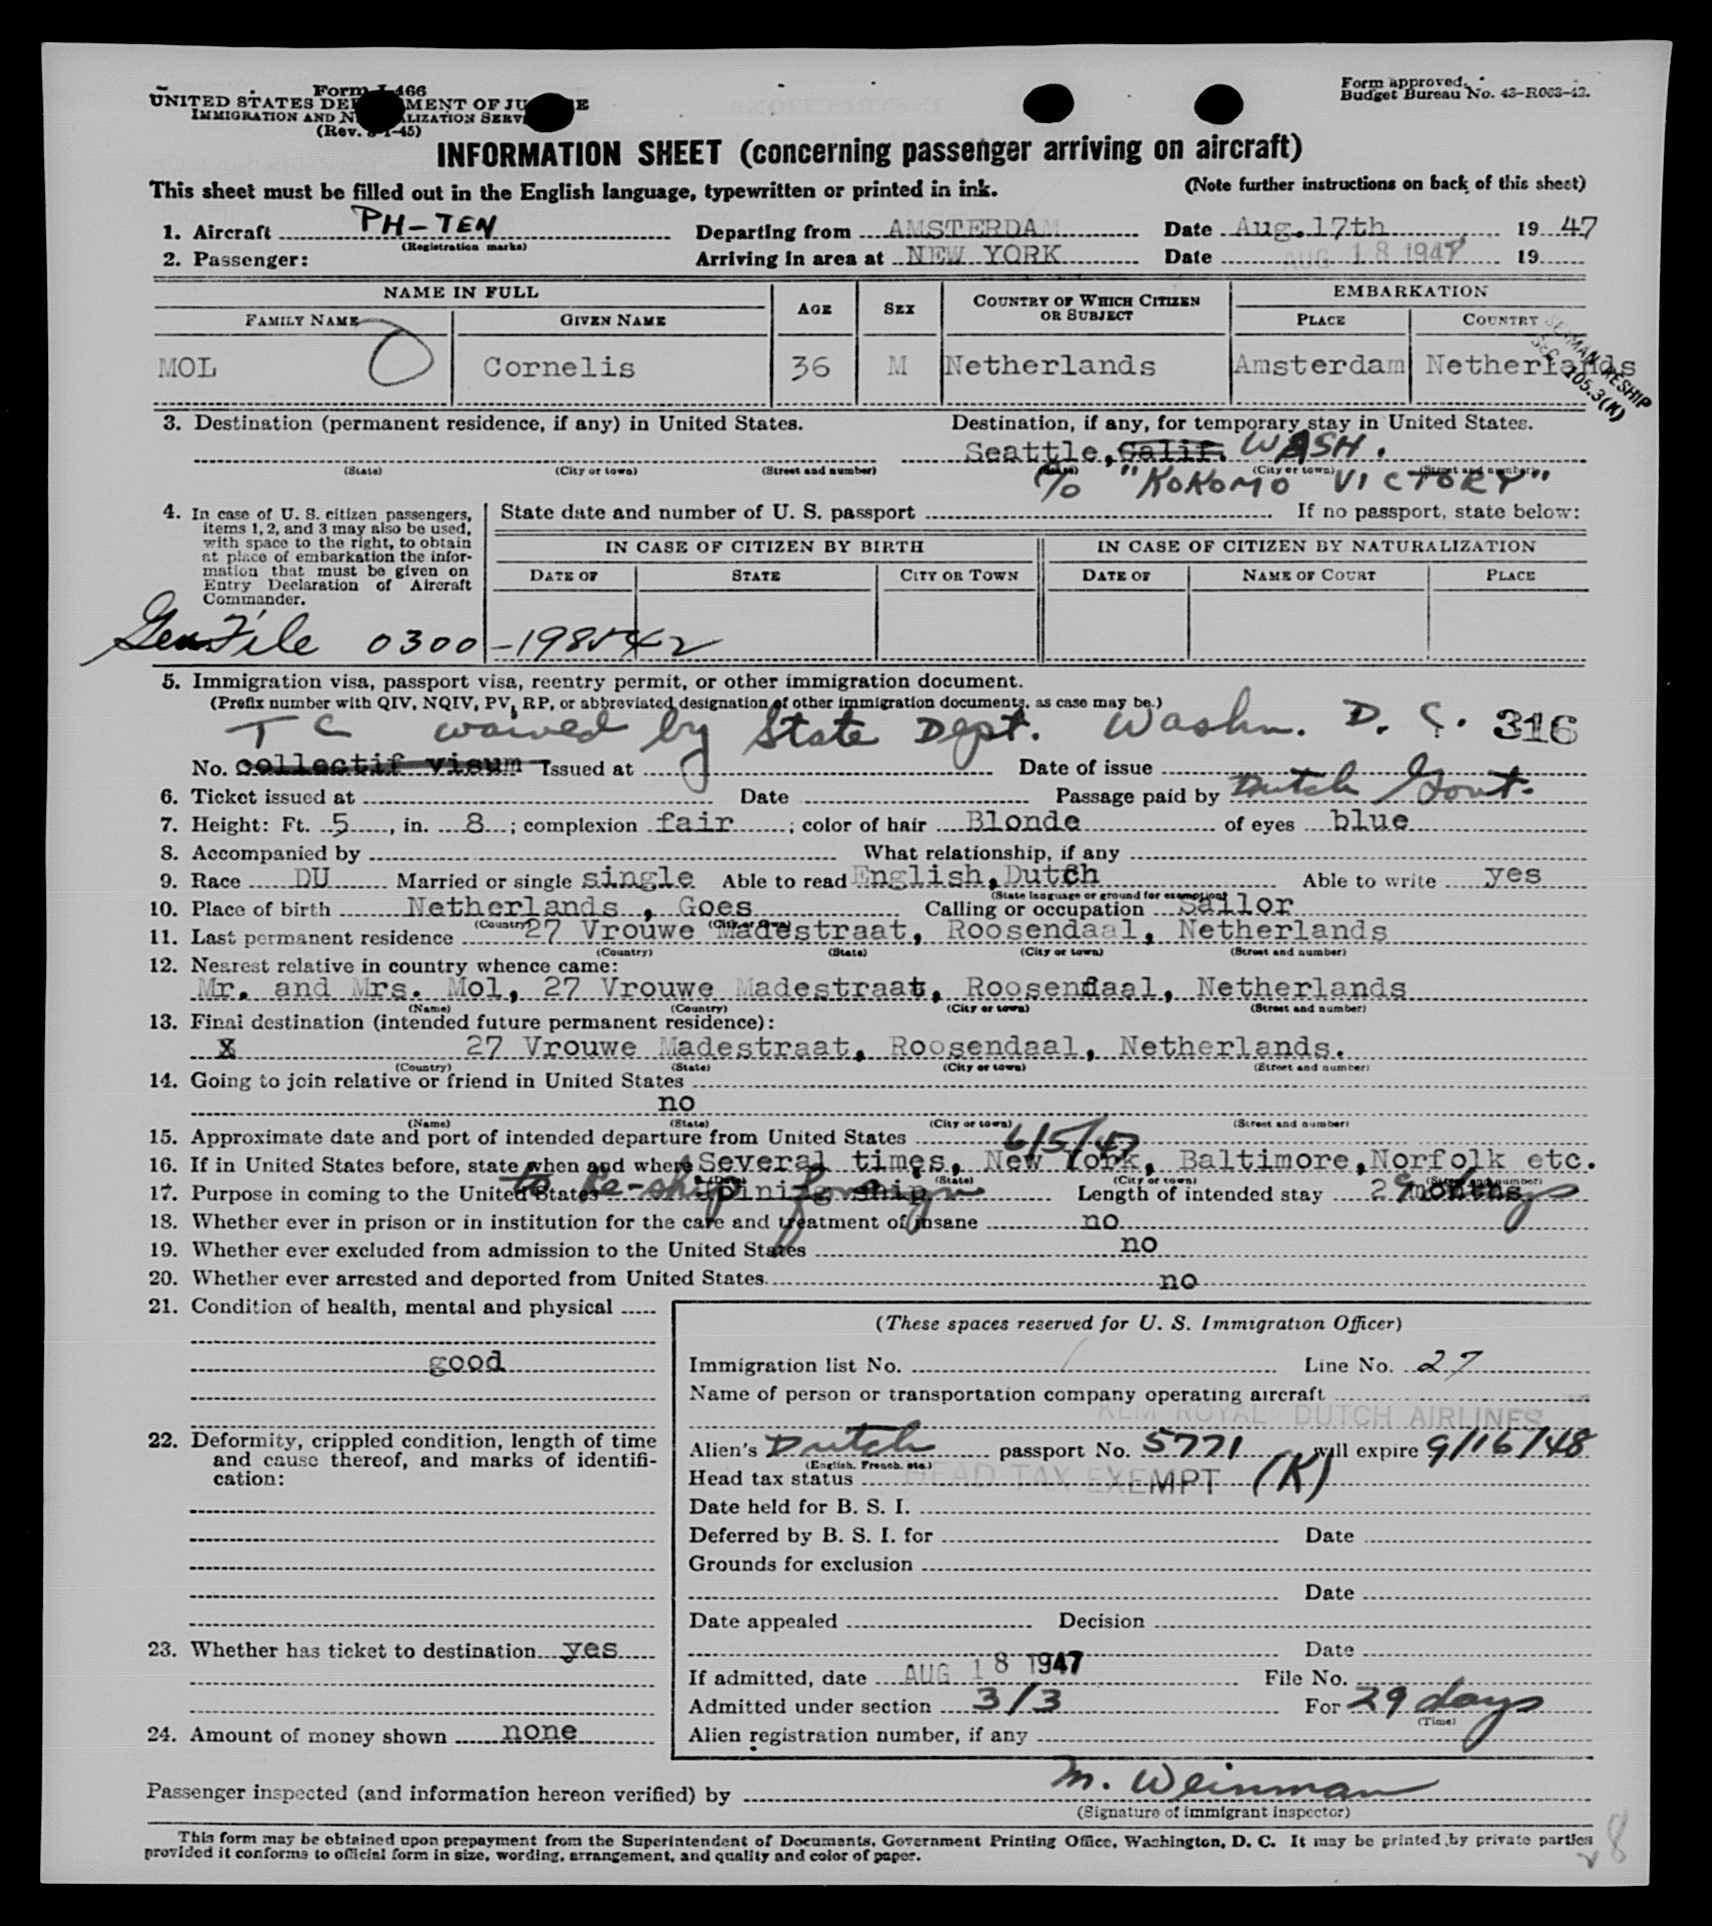 Form I-466
UNITED STATES DEPARTMENT OF JUSTICE
IMMIGRATION AND NATURALIZATION SERVICE
(Rev. 3-1-45)
Form approved.
Budget Bureau No. 43-R063-42.
INFORMATION SHEET (concerning passenger arriving on aircraft)
This sheet must be filled out in the English language, typewritten or printed in ink.
(Note further instructions on back of this sheet)
1. Aircraft PH-TEN Departing from AMSTERDAM Date Aug. 17th 1947
(Registration marks)
2. Passenger: Arriving in area at NEW YORK Date AUG 18 1947 19
NAME IN FULL AGE SEX COUNTRY OF WHICH CITIZEN OR SUBJECT EMBARKATION
FAMILY NAME GIVEN NAME PLACE COUNTRY
MOL Cornelis 36 M Netherlands Amsterdam Netherlands
SEAMAN RESHIP
SEC 105.3(K)
3. Destination (permanent residence, if any) in United States. Destination, if any, for temporary stay in United States.
Seattle, Calif. WASH.
(State) (City or town) (Street and number) (State) (City or town) (Street and number)
% "KOKOMO VICTORY"
4. In case of U. S. citizen passengers, items 1, 2, and 3 may also be used, with space to the right, to obtain at place of embarkation the information that must be given on Entry Declaration of Aircraft Commander.
State date and number of U. S. passport If no passport, state below:
IN CASE OF CITIZEN BY BIRTH IN CASE OF CITIZEN BY NATURALIZATION
DATE OF STATE CITY OR TOWN DATE OF NAME OF COURT PLACE
Gen File 0300-198542
5. Immigration visa, passport visa, reentry permit, or other immigration document.
(Prefix number with QIV, NQIV, PV, RP, or abbreviated designation of other immigration documents, as case may be.)
T C waived by State Dept. Washn. D. C. 316
No. collectif visum Issued at Date of issue
6. Ticket issued at Date Passage paid by Dutch Govt.
7. Height: Ft. 5, in. 8; complexion fair; color of hair Blonde of eyes blue
8. Accompanied by What relationship, if any
9. Race DU Married or single single Able to read English, Dutch Able to write yes
(State language or ground for exemption)
10. Place of birth Netherlands, Goes Calling or occupation Sailor
(Country) (City or town)
11. Last permanent residence 27 Vrouwe Madestraat, Roosendaal, Netherlands
(Country) (State) (City or town) (Street and number)
12. Nearest relative in country whence came:
Mr. and Mrs. Mol, 27 Vrouwe Madestraat, Roosendaal, Netherlands
(Name) (Country) (City or town) (Street and number)
13. Final destination (intended future permanent residence):
27 Vrouwe Madestraat, Roosendaal, Netherlands.
(Country) (State) (City or town) (Street and number)
14. Going to join relative or friend in United States
no
(Name) (State) (City or town) (Street and number)
15. Approximate date and port of intended departure from United States 6/5/47
16. If in United States before, state when and where Several times, New York, Baltimore, Norfolk etc.
(Date) (State) (City or town) (Street and number)
17. Purpose in coming to the United States to Re-ship foreign Length of intended stay 29 days
18. Whether ever in prison or in institution for the care and treatment of insane no
19. Whether ever excluded from admission to the United States no
20. Whether ever arrested and deported from United States. no
21. Condition of health, mental and physical
good
22. Deformity, crippled condition, length of time and cause thereof, and marks of identification:
23. Whether has ticket to destination yes
24. Amount of money shown none
(These spaces reserved for U. S. Immigration Officer)
Immigration list No. Line No. 27
Name of person or transportation company operating aircraft
KLM ROYAL DUTCH AIRLINES
Alien's Dutch passport No. 5771 will expire 9/16/48
(English, French, etc.)
Head tax status HEAD TAX EXEMPT (K)
Date held for B. S. I.
Deferred by B. S. I. for Date
Grounds for exclusion
Date
Date appealed Decision
Date
If admitted, date AUG 18 1947 File No.
Admitted under section 3/3 For 29 days
(Time)
Alien registration number, if any
Passenger inspected (and information hereon verified) by M. Weinman
(Signature of immigrant inspector)
This form may be obtained upon prepayment from the Superintendent of Documents, Government Printing Office, Washington, D. C. It may be printed by private parties
provided it conforms to official form in size, wording, arrangement, and quality and color of paper.